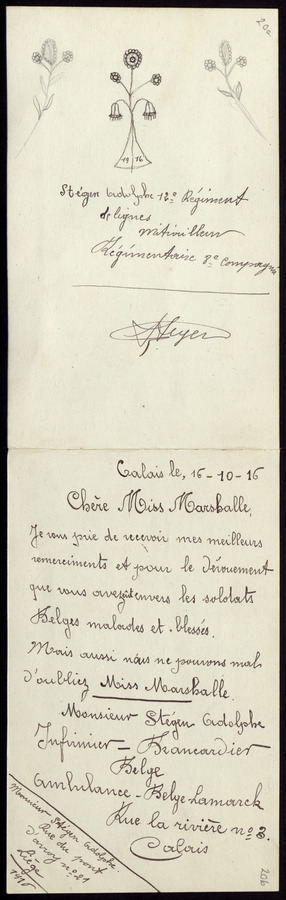 20a
19 16
Stégen Adolphe 12e Régiment
de lignes
mitrailleur
Régimentaire 8e Compagnie
Stegen
Calais le, 16-10-16
Chère Miss Marshalle,
Je vous prie de recevoir mes meilleurs
remerciments et pour le dévouement
que vous avez envers les soldats
Belges malades et blessés.
Mais aussi nous ne pouvons mal
d'oubliez Miss Marshalle.
Monsieur Stégen Adolphe
Infirmier - Brancardier
Belge
Ambulance - Belge Lamarck
Rue la rivière no 3.
Calais
Monsieur Stégen Adolphe
Rue du pont
d'avroy no 21
Liège
1916
20b